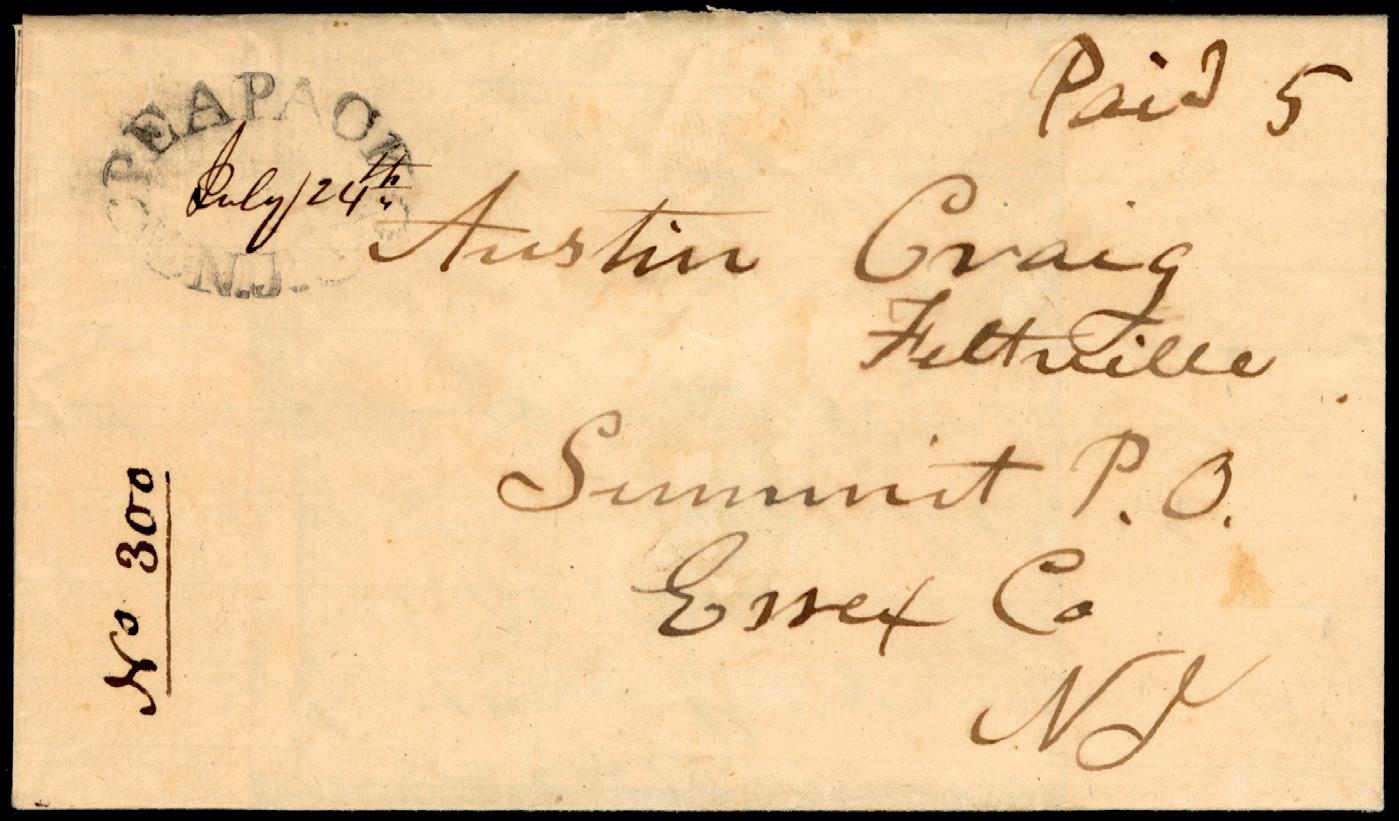 PEAPACK
July 24th
N.J.
Paid 5
Austin Craig
Feltville
Summit P.O.
Essex Co
NJ
No 300